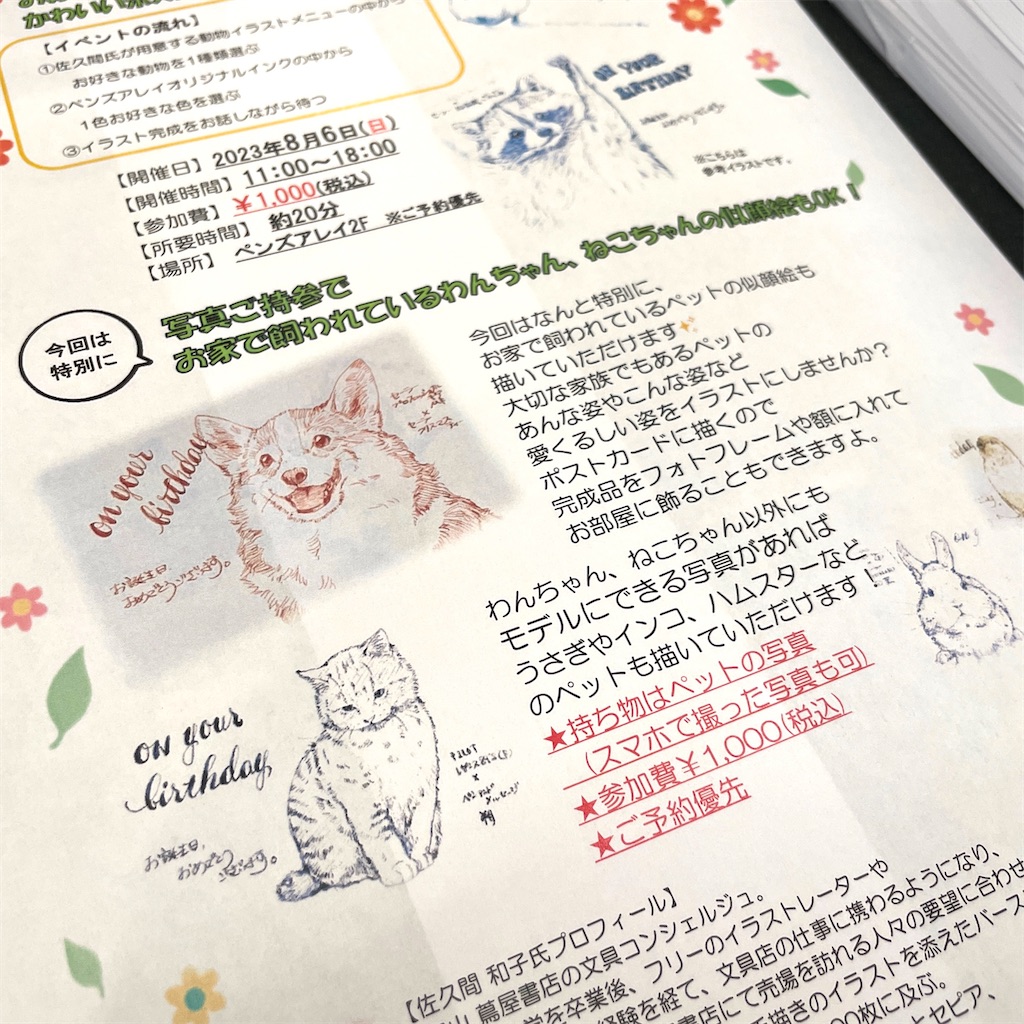 かわいい
【イベントの流れ】
①佐久間氏が用意する動物イラストメニューの中から
お好きな動物を1種類選ぶ
②ペンズアレイオリジナルインクの中から
1色お好きな色を選ぶ
③イラスト完成をお話しながら待つ
ON YOUR
BIRTHDAY
※こちらは
参考イラストです。
【開催日】2023年8月6日(日)
【開催時間】11:00～18:00
【参加費】￥1,000(税込)
【所要時間】 約20分
【場所】 ペンズアレイ2F ※ご予約優先
今回は
特別に
写真ご持参で
お家で飼われているわんちゃん、ねこちゃんの似顔絵もOK！
今回はなんと特別に、
お家で飼われているペットの似顔絵も
描いていただけます
大切な家族でもあるペットの
あんな姿やこんな姿など
愛くるしい姿をイラストにしませんか？
ポストカードに描くので
完成品をフォトフレームや額に入れて
お部屋に飾ることもできますよ。
on your
birthday
お誕生日
おめでとうございます。
わんちゃん、ねこちゃん以外にも
モデルにできる写真があれば
うさぎやインコ、ハムスターなど
のペットも描いていただけます！
★持ち物はペットの写真
(スマホで撮った写真も可)
★参加費￥1,000(税込)
★ご予約優先
on your
birthday
お誕生日、
おめでとうございます。
【佐久間 和子氏プロフィール】
蔦屋書店の文具コンシェルジュ。
を卒業後、フリーのイラストレーターや
経験を経て、文具店の仕事に携わるようになり、
書店にて売場を訪れる人々の要望に合わせ
描きのイラストを添えたバース
00枚に及ぶ。
とセピア、